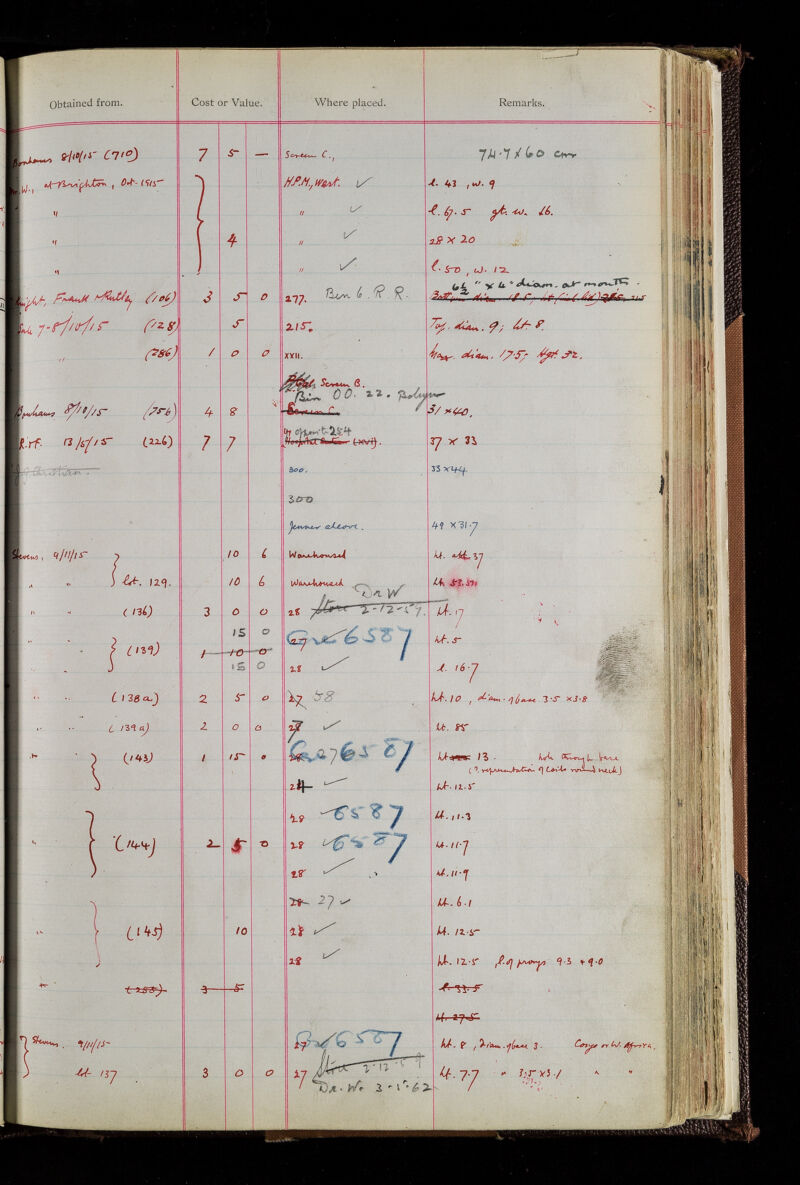 Obtained from. Cost or Value. Where placed. Remarks.
8/10/15 (710) 7 5 — Screen C., 74.7 x 60 cm
at Brighton, Oct. 1915 H.P.M., West. ✓ l. 43, w. 9
" " ✓ l. 67.5 gt. w. 26.
" 4 " ✓ 28 x 20
" " ✓ l. 50, w. 12
6½" x 4" diam. at mouth.
Knight, Frank & Rutley (106) 3 5 0 277. Bin 6. R. R.
Sale 7-8/10/15 (128) 5 215. Top. diam. 9; ht 8.
" (286) 1 0 0 XXII. Max. diam. 17.5; Hgt 32.
Screen B.
Bin OO. 22.
8/10/15 (756) 4 8 Screen C. 31 x 40.
opposite 284
13/5/15 (226) 7 7 (XVI). 37 x 33
300. 33 x 44
300
Jenner alcove. 49 x 31.7
Stevens, 9/11/15 10 6 Warehoused ht. abt. 37
" " Lot. 129. 10 6 Warehoused ht. 53.5
Dr W
" " (136) 3 0 0 28 Store 2-12-59. ht. 17
15 0
" } (139) 1 10 0 27 ✓ 6587 ht. 5
15 0 28 ✓ l. 16.7
" " (138a) 2 5 0 27 58 ht. 10, diam. of base 3.5 x 3.8
" " (139a) 2 0 0 27 ✓ ht. 85
" } (143) 1 15 0 6587 ht 13. hole through base
(? representation of coils round neck)
24 ✓ ht. 12.5
28 ✓ 6587 ht. 11.3
" } (144) 2 5 0 28 ✓ 6587 ht. 11.7
28 ✓ ht. 11.9
28 27 ✓ ht. 6.1
" } (145) 10 28 ✓ ht. 12.5
28 ✓ ht. 12.5, l. of prongs 9.3 + 9.0
" (253) 3 5 l. 33.5
ht. 27.5
Stevens. 9/11/15 27 6587 ht. 8, diam. of base 3. Congo or W. Africa.
Lot 137 3 0 0 27 Store 2-12-59 ht. 7.7 " 3.5 x 3.1 " "
Dr. W. 3-1-62